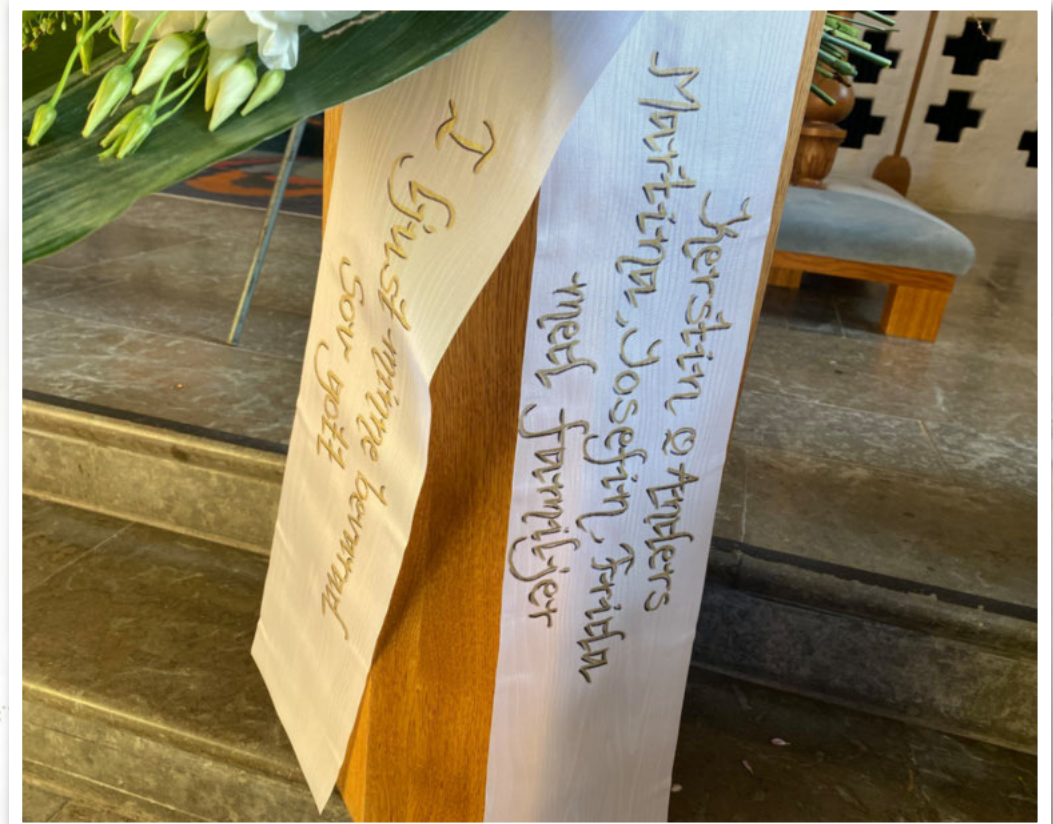 I ljust minne bevarad
Sov gott
Kerstin & Anders
Martina, Josefin, Frida
med familjer